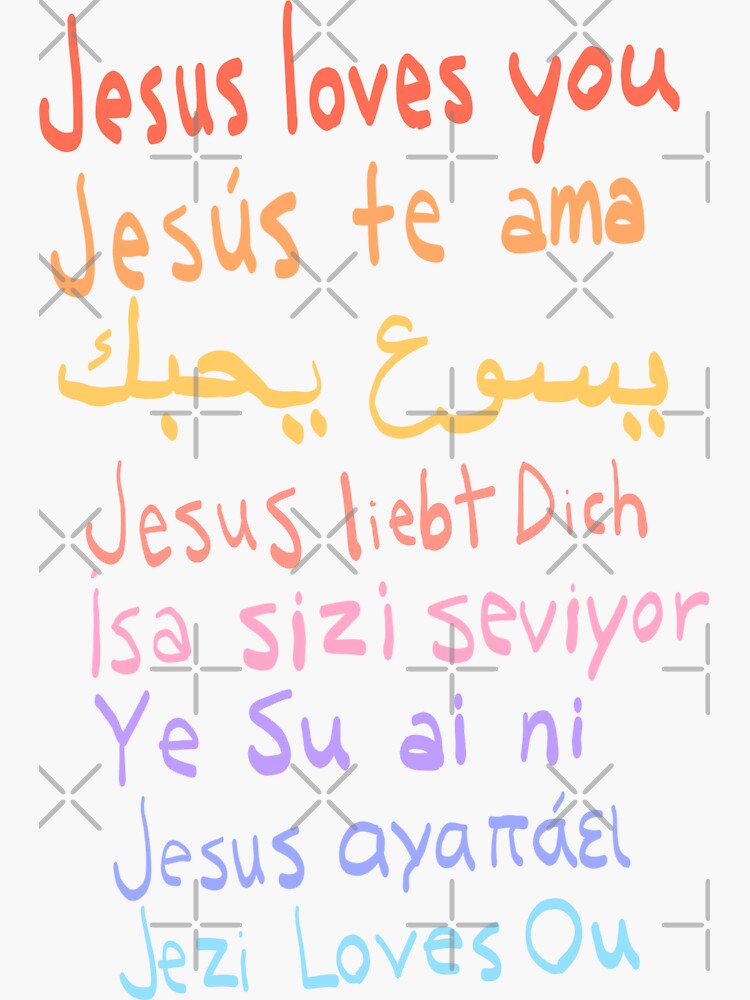 Jesus loves you
Jesús te ama
يسوع يحبك
Jesus liebt Dich
İsa sizi seviyor
Ye Su ai ni
Jesus αγαπάει
Jezi Loves Ou